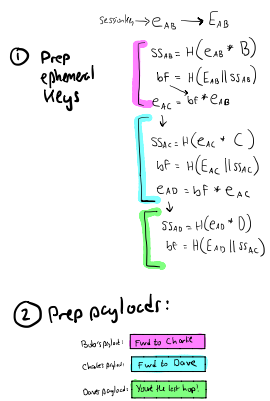 sessionkey → e_AB → E_AB
① Prep ephemeral keys
ss_AB = H(e_AB * B)
bF = H(E_AB || ss_AB)
e_AC = bF * e_AB
ss_AC = H(e_AC * C)
bF = H(E_AC || ss_AC)
e_AD = bF * e_AC
ss_AD = H(e_AD * D)
bF = H(E_AD || ss_AC)
② Prep payloads:
Bob's payload: Fwd to Charlie
Charlie's payload: Fwd to Dave
Dave's payload: You're the last hop!